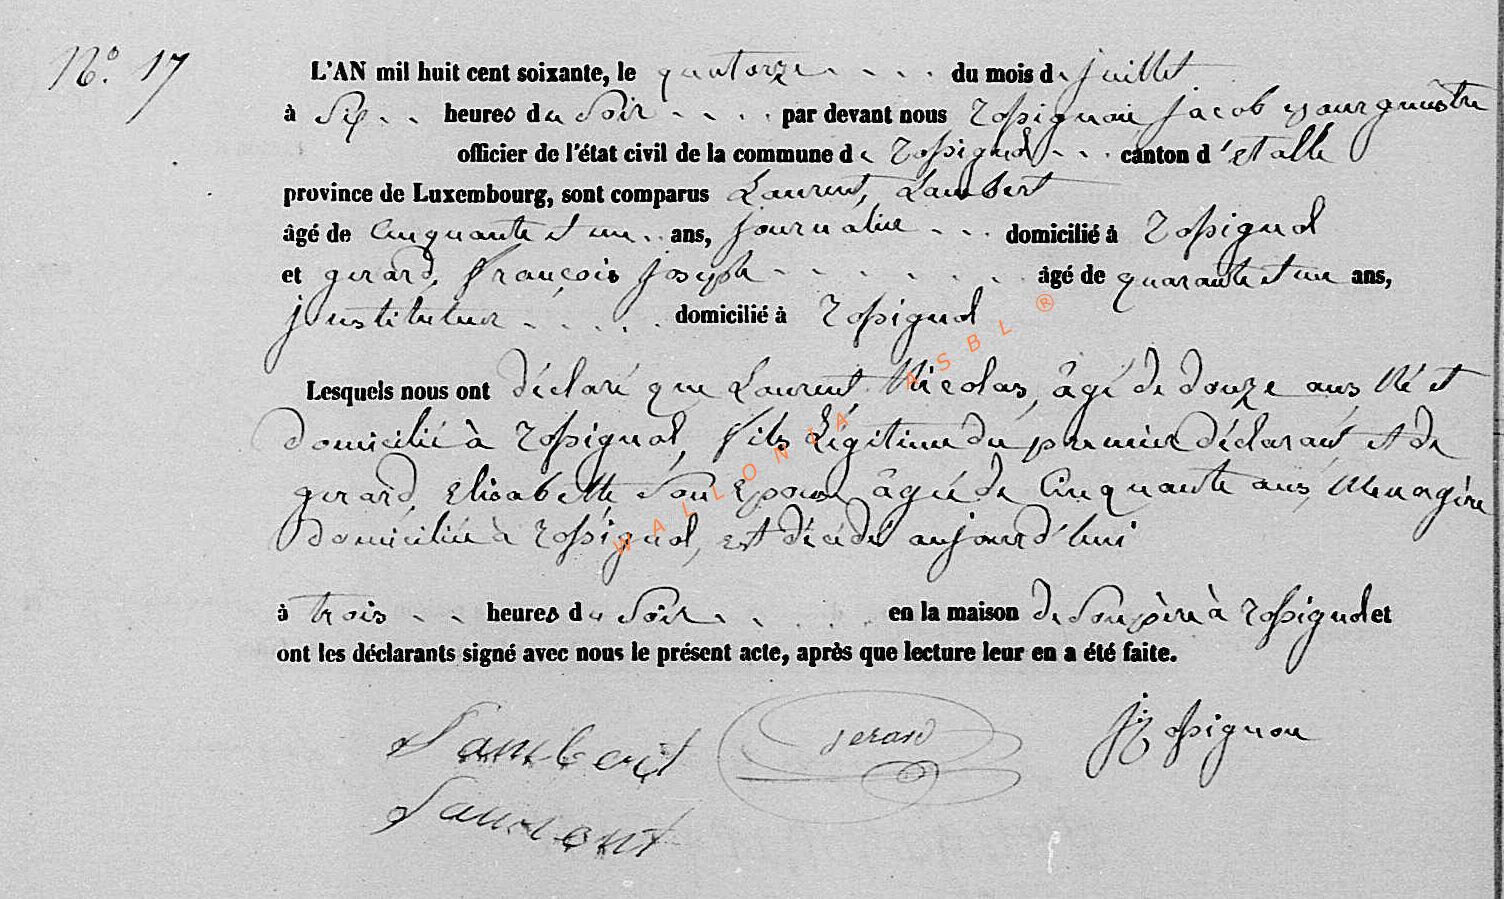 N.o 17
L'AN mil huit cent soixante, le quatorze du mois de juillet
à Six heures du Soir par devant nous Rossignon Jacob Bourgmestre
officier de l'état civil de la commune de Rossignol canton d'Etalle
province de Luxembourg, sont comparus Laurent, Lambert
âgé de Cinquante et un ans, journalier domicilié à Rossignol
et gerard, François Joseph âgé de quarante et un ans,
Instituteur domicilié à Rossignol
Lesquels nous ont déclaré que Laurent Nicolas, âgé de douze ans Né et
domicilié à Rossignol, fils Légitime du premier déclarant et de
gerard, Elisabette Son Epouse âgée de Cinquante ans, Menagère
domiciliée à Rossignol, est décédé aujourd'hui
à trois heures du Soir en la maison de Son père à Rossignol et
ont les déclarants signé avec nous le présent acte, après que lecture leur en a été faite.
Lambert gerard J Rossignon
Laurent
WALLONIA ASBL ®